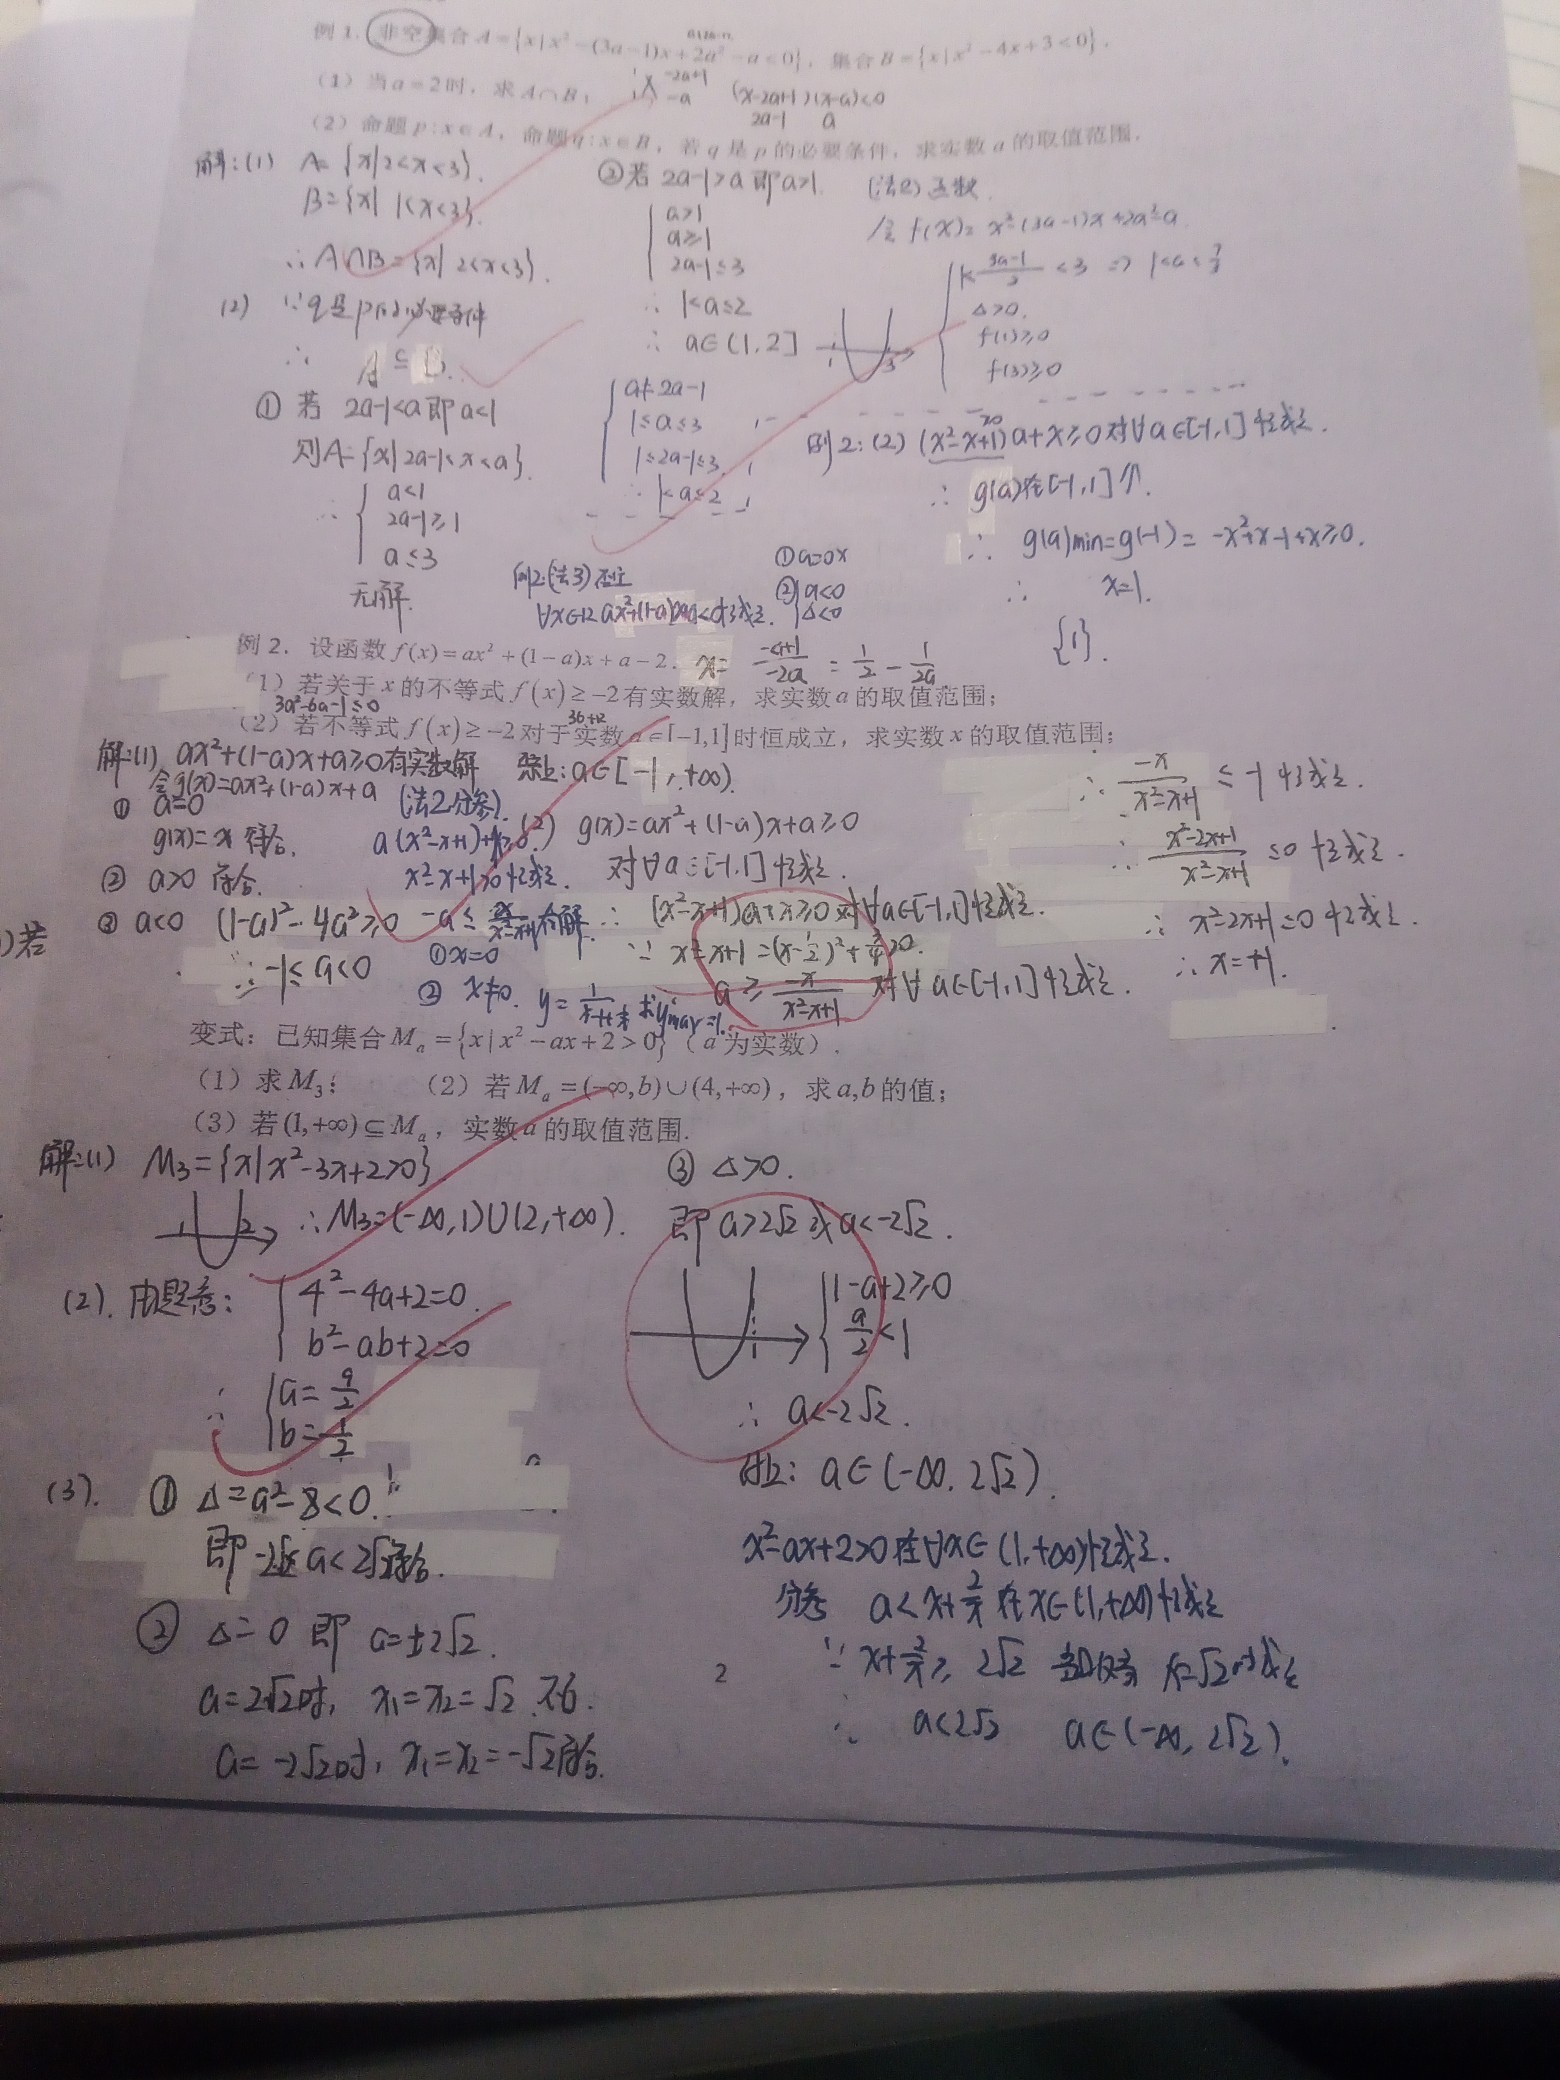 例1. 非空集合 A={x|x²-(3a-1)x+2a²-a<0}, 集合 B={x|x²-4x+3<0}.
(1) 当 a=2 时, 求 A∩B;
-2a+1
-a
(x-2a+1)(x-a)<0
2a-1 a
(2) 命题 p:x∈A, 命题 q:x∈B, 若 q 是 p 的必要条件, 求实数 a 的取值范围.
解:(1) A={x|2<x<3}.
B={x|1<x<3}.
∴A∩B={x|2<x<3}.
(2) ∵q是p的必要条件
∴ A⊆B.
① 若 2a-1<a 即 a<1
则A={x|2a-1<x<a}.
∴ { a<1
2a-1≥1
a≤3
无解.
②若 2a-1>a 即a>1.
{ a>1
a≥1
2a-1≤3
∴ 1<a≤2
∴ a∈(1,2]
{ a≠2a-1
1≤a≤3
1≤2a-1≤3
∴ 1<a≤2
(法2) 函数.
令 f(x)=x²-(3a-1)x+2a²-a
{ 1<(3a-1)/2<3 ⇒ 1<a<7/3
Δ>0.
f(1)≥0
f(3)≥0
1 3
例2:(2) (x²-x+1)a+x≥0对∀a∈[-1,1]恒成立.
>0
∴ g(a)在[-1,1]↑.
∴ g(a)min=g(-1)=-x²+x-1+x≥0.
∴ x=1.
{1}.
例2:(法3) 否定
∀x∈R ax²+(1-a)x+a<0恒成立.
①a=0×
② { a<0
Δ<0
例 2. 设函数 f(x)=ax²+(1-a)x+a-2.
x= (-a+1)/(-2a) = 1/2 - 1/2a
(1) 若关于 x 的不等式 f(x)≥-2 有实数解, 求实数 a 的取值范围;
3a²-6a-1≤0
36+12
(2) 若不等式 f(x)≥-2 对于实数 a∈[-1,1] 时恒成立, 求实数 x 的取值范围;
解:(1) ax²+(1-a)x+a≥0有实数解
令g(x)=ax²+(1-a)x+a
① a=0
g(x)=x 符合.
② a>0 符合.
③ a<0 (1-a)²-4a²≥0
∴-1≤a<0
综上:a∈[-1,+∞).
(法2分参).
a(x²-x+1)+x≥0.
x²-x+1>0恒成立.
-a≤ x/(x²-x+1)有解.
①x=0
② x≠0. y= 求ymax=1.
(2) g(x)=ax²+(1-a)x+a≥0
对∀a∈[-1,1]恒成立.
∴ (x²-x+1)a+x≥0对∀a∈[-1,1]恒成立.
∵ x²-x+1=(x-1/2)²+3/4>0.
a≥ -x/(x²-x+1) 对∀a∈[-1,1]恒成立.
∴ -x/(x²-x+1) ≤-1恒成立.
∴ (x²-2x+1)/(x²-x+1) ≤0 恒成立.
∴ x²-2x+1=0恒成立.
∴ x=+1.
)若
变式: 已知集合 Mₐ={x|x²-ax+2>0} (a 为实数).
(1) 求 M₃; (2) 若 Mₐ=(-∞,b)∪(4,+∞), 求 a,b 的值;
(3) 若 (1,+∞)⊆Mₐ, 实数 a 的取值范围.
解:(1) M₃={x|x²-3x+2>0}
1 2 ∴M₃=(-∞,1)∪(2,+∞).
(2). 由题意: { 4²-4a+2=0.
b²-ab+2=0
∴ { a=9/2
b=1/2
(3). ① Δ=a²-8<0.
即 -2√2<a<2√2符合.
② Δ=0 即 a=±2√2.
a=2√2时, x₁=x₂=√2 不合.
a=-2√2时, x₁=x₂=-√2符合.
③ Δ>0.
即 a>2√2或a<-2√2.
1
{ 1-a+2≥0
a/2<1
∴ a<-2√2.
综上: a∈(-∞,2√2).
x²-ax+2>0在∀x∈(1,+∞)恒成立.
分参 a<x+2/x在x∈(1,+∞)恒成立
∵ x+2/x≥2√2 当且仅当 x=√2时成立
∴ a<2√2 a∈(-∞,2√2).
2